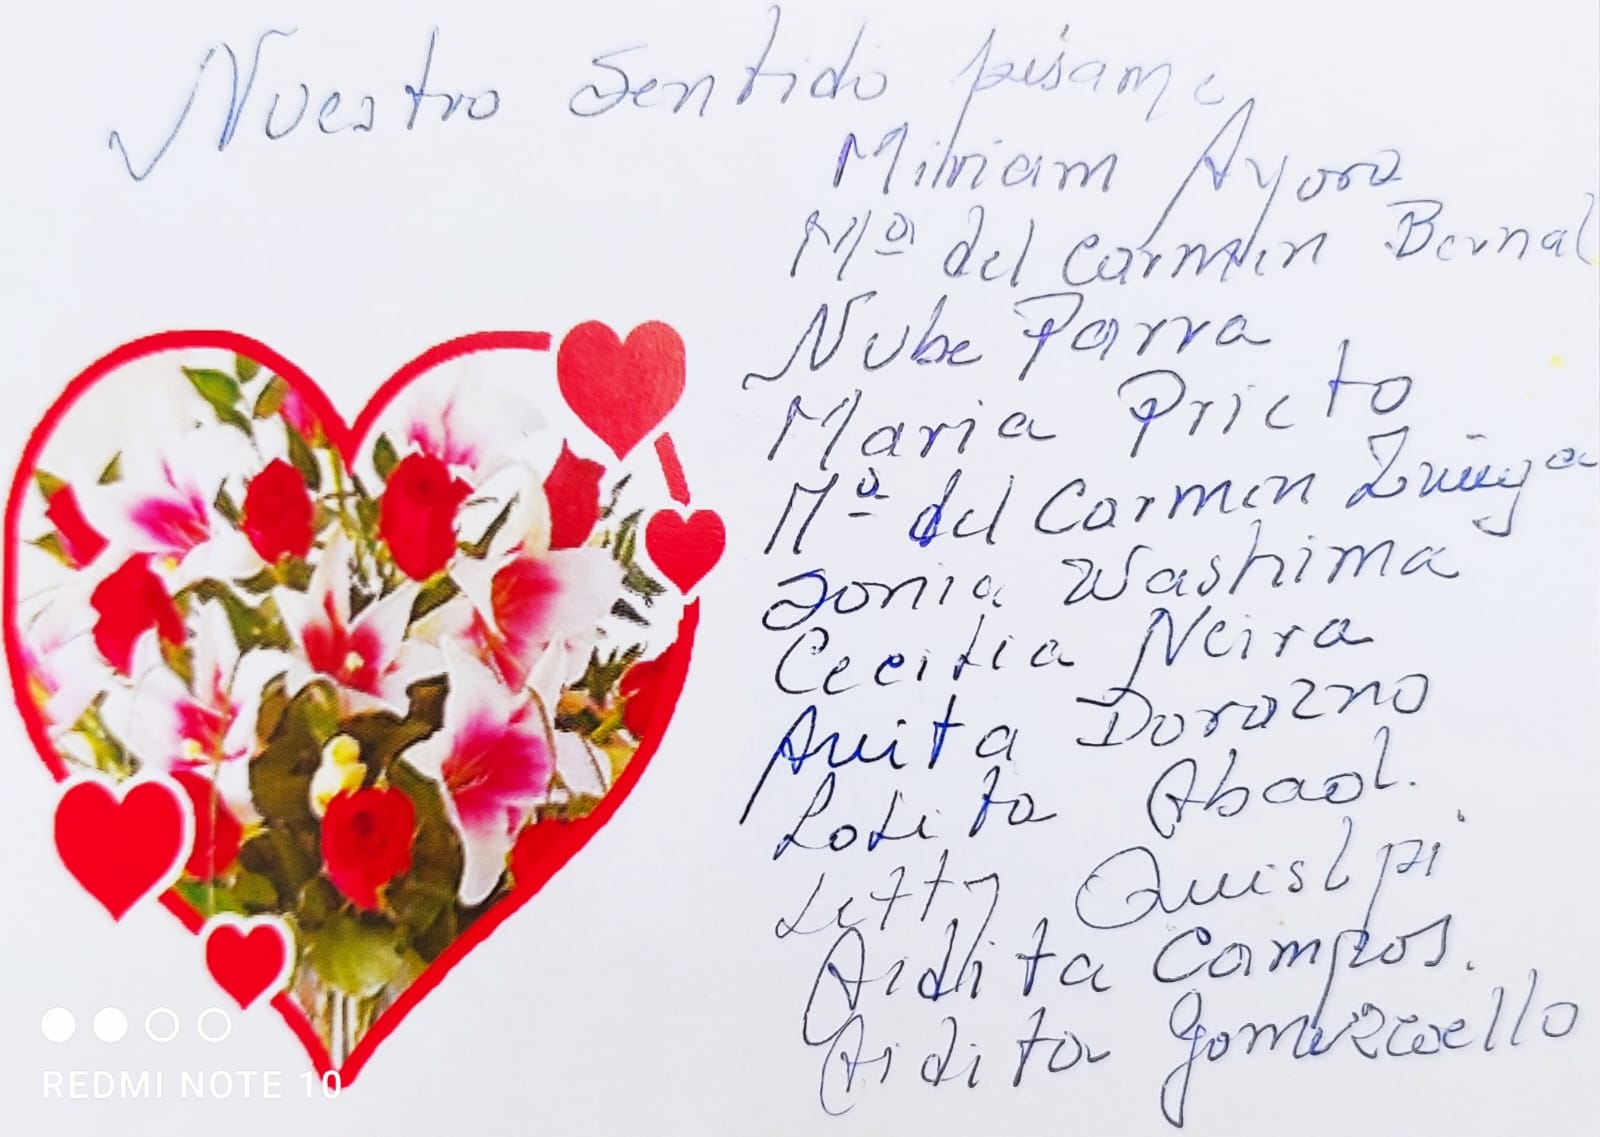 Nuestro Sentido pésame
Miriam Ayora
Mª del Carmen Bernal
Nube Parra
Maria Prieto
Mª del Carmen Zuñiga
Sonia Washima
Cecilia Neira
Anita Dorazno
Lolita Abad.
Letty Quislpi
Aidita Campos.
Aidita Gomezcoello
REDMI NOTE 10